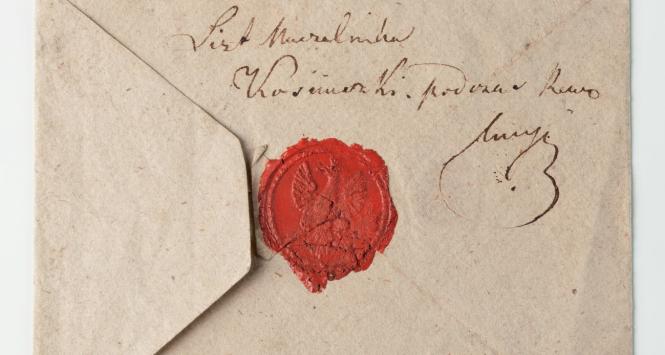 List Naczelnika
Kosciuszki podczas Rewo
lucyi